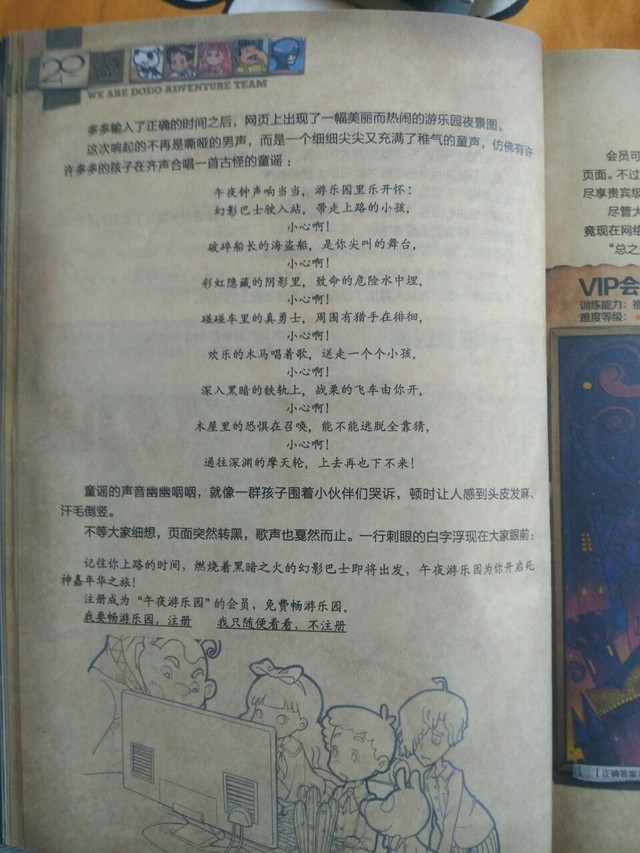 20
WE ARE DODO ADVENTURE TEAM
多多输入了正确的时间之后，网页上出现了一幅美丽而热闹的游乐园夜景图。
这次响起的不再是嘶哑的男声，而是一个细细尖尖又充满了稚气的童声，仿佛有许
许多多的孩子在齐声合唱一首古怪的童谣：
午夜钟声响当当，游乐园里乐开怀；
幻影巴士驶入站，带走上路的小孩，
小心啊！
破碎船长的海盗船，是你尖叫的舞台，
小心啊！
彩虹隐藏的阴影里，致命的危险水中埋，
小心啊！
碰碰车里的真勇士，周围有猎手在徘徊，
小心啊！
欢乐的木马唱着歌，送走一个个小孩，
小心啊！
深入黑暗的铁轨上，战栗的飞车由你开，
小心啊！
木屋里的恐惧在召唤，能不能逃脱全靠猜，
小心啊！
通往深渊的摩天轮，上去再也下不来！
童谣的声音幽幽咽咽，就像一群孩子围着小伙伴们哭诉，顿时让人感到头皮发麻、
汗毛倒竖。
不等大家细想，页面突然转黑，歌声也戛然而止。一行刺眼的白字浮现在大家眼前：
记住你上路的时间，燃烧着黑暗之火的幻影巴士即将出发，午夜游乐园为你开启死
神嘉年华之旅！
注册成为“午夜游乐园”的会员，免费畅游乐园。
我要畅游乐园，注册 我只随便看看，不注册
会员可
页面。不过
尽享贵宾级
尽管大
竟现在网络
“总之
VIP会
训练能力：推
难度等级：★
【正确答案